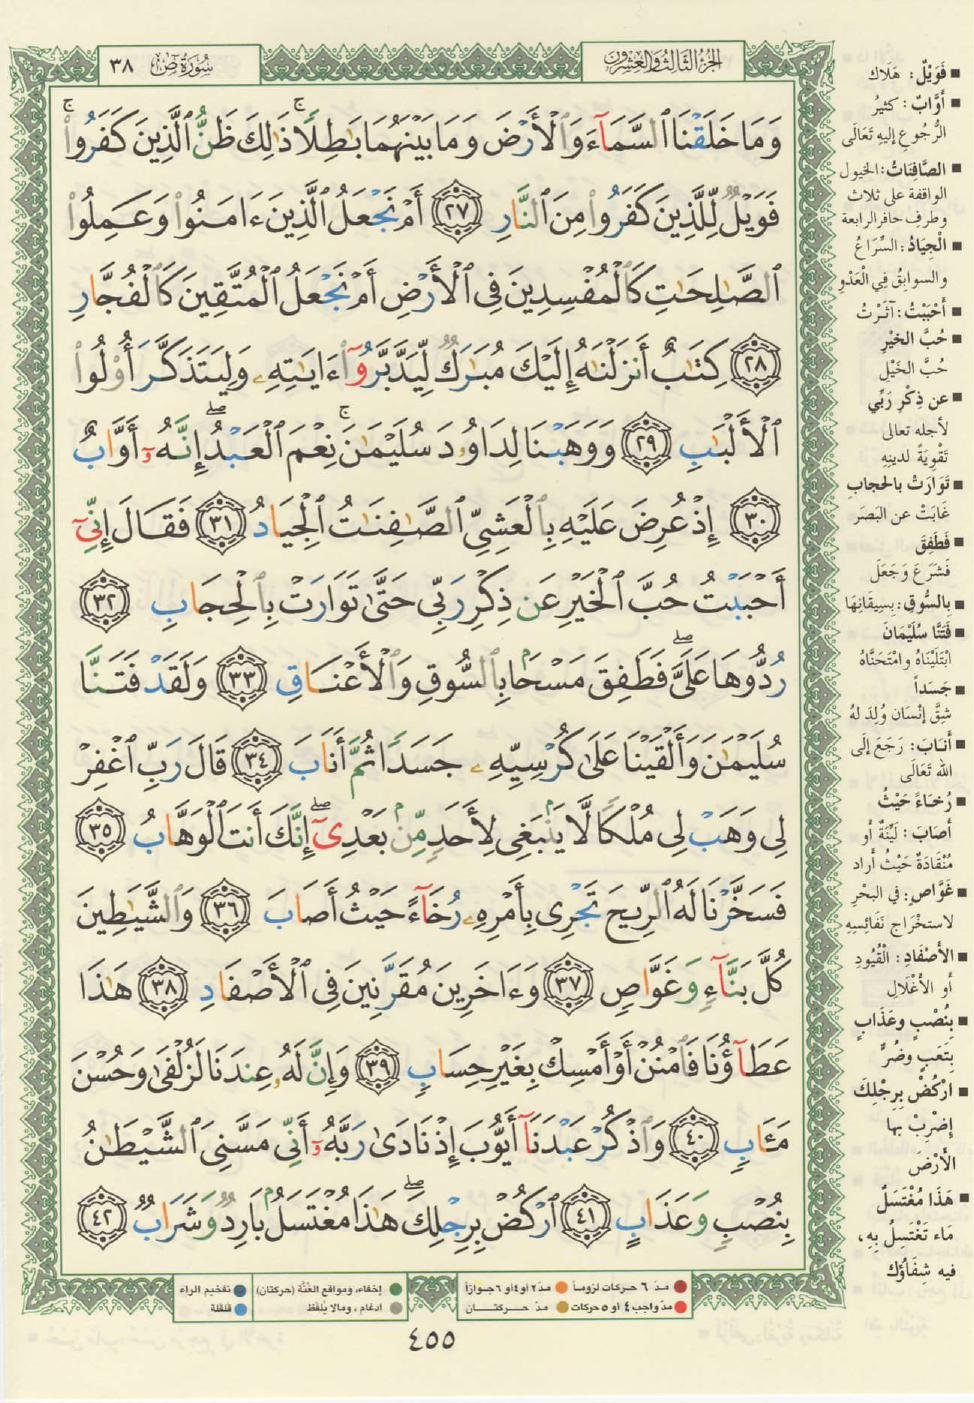 سُورَةُ صٓ ٣٨
الجُزءُ الثَّالِثُ وَالعِشْرُون
وَمَا خَلَقْنَا ٱلسَّمَآءَ وَٱلْأَرْضَ وَمَا بَيْنَهُمَا بَٰطِلًا ۚ ذَٰلِكَ ظَنُّ ٱلَّذِينَ كَفَرُوا۟ ۚ
فَوَيْلٌ لِّلَّذِينَ كَفَرُوا۟ مِنَ ٱلنَّارِ ٢٧ أَمْ نَجْعَلُ ٱلَّذِينَ ءَامَنُوا۟ وَعَمِلُوا۟
ٱلصَّٰلِحَٰتِ كَٱلْمُفْسِدِينَ فِى ٱلْأَرْضِ أَمْ نَجْعَلُ ٱلْمُتَّقِينَ كَٱلْفُجَّارِ
٢٨ كِتَٰبٌ أَنزَلْنَٰهُ إِلَيْكَ مُبَٰرَكٌ لِّيَدَّبَّرُوٓا۟ ءَايَٰتِهِۦ وَلِيَتَذَكَّرَ أُو۟لُوا۟
ٱلْأَلْبَٰبِ ٢٩ وَوَهَبْنَا لِدَاوُۥدَ سُلَيْمَٰنَ ۚ نِعْمَ ٱلْعَبْدُ ۖ إِنَّهُۥٓ أَوَّابٌ
٣٠ إِذْ عُرِضَ عَلَيْهِ بِٱلْعَشِىِّ ٱلصَّٰفِنَٰتُ ٱلْجِيَادُ ٣١ فَقَالَ إِنِّىٓ
أَحْبَبْتُ حُبَّ ٱلْخَيْرِ عَن ذِكْرِ رَبِّى حَتَّىٰ تَوَارَتْ بِٱلْحِجَابِ ٣٢
رُدُّوهَا عَلَىَّ ۖ فَطَفِقَ مَسْحًۢا بِٱلسُّوقِ وَٱلْأَعْنَاقِ ٣٣ وَلَقَدْ فَتَنَّا
سُلَيْمَٰنَ وَأَلْقَيْنَا عَلَىٰ كُرْسِيِّهِۦ جَسَدًا ثُمَّ أَنَابَ ٣٤ قَالَ رَبِّ ٱغْفِرْ
لِى وَهَبْ لِى مُلْكًا لَّا يَنۢبَغِى لِأَحَدٍ مِّنۢ بَعْدِىٓ ۖ إِنَّكَ أَنتَ ٱلْوَهَّابُ ٣٥
فَسَخَّرْنَا لَهُ ٱلرِّيحَ تَجْرِى بِأَمْرِهِۦ رُخَآءً حَيْثُ أَصَابَ ٣٦ وَٱلشَّيَٰطِينَ
كُلَّ بَنَّآءٍ وَغَوَّاصٍ ٣٧ وَءَاخَرِينَ مُقَرَّنِينَ فِى ٱلْأَصْفَادِ ٣٨ هَٰذَا
عَطَآؤُنَا فَٱمْنُنْ أَوْ أَمْسِكْ بِغَيْرِ حِسَابٍ ٣٩ وَإِنَّ لَهُۥ عِندَنَا لَزُلْفَىٰ وَحُسْنَ
مَـَٔابٍ ٤٠ وَٱذْكُرْ عَبْدَنَآ أَيُّوبَ إِذْ نَادَىٰ رَبَّهُۥٓ أَنِّى مَسَّنِىَ ٱلشَّيْطَٰنُ
بِنُصْبٍ وَعَذَابٍ ٤١ ٱرْكُضْ بِرِجْلِكَ ۖ هَٰذَا مُغْتَسَلٌۢ بَارِدٌ وَشَرَابٌ ٤٢
■ فَوَيْلٌ: هَلَاك
■ أَوَّابٌ: كثيرُ
الرُّجوعِ إليهِ تَعَالَى
■ الصَّافِنَاتُ: الخيول
الواقفة على ثلاث
وطرفِ حافرِ الرابعة
■ الْجِيَادُ: السِّرَاعُ
والسوابِقُ فِي الْعَدْوِ
■ أَحْبَبْتُ: آثَرْتُ
■ حُبَّ الخَيْرِ
حُبَّ الخَيْلِ
■ عن ذِكْرِ رَبِّي
لأجله تعالى
تَقْوِيَةً لدينِهِ
■ تَوَارَتْ بالحجابِ
غَابَتْ عن البَصَر
■ فَطَفِقَ
فَشَرَعَ وَجَعَلَ
■ بالسُّوقِ: بِسِيقَانِهَا
■ فَتَنَّا سُلَيْمَانَ
ابْتَلَيْنَاهُ وامْتَحَنَّاهُ
■ جَسَداً
شِقَّ إنْسَان وُلِدَ لهُ
■ أَنَابَ: رَجَعَ إلَى
الله تَعَالَى
■ رُخَاءً حَيْثُ
أصَابَ: لَيِّنَةً أو
مُنْقَادَةً حَيْثُ أراد
■ غَوَّاصٍ: في البَحْرِ
لاستخْراج نَفَائِسِهِ
■ الأَصْفَادِ: الْقُيُودِ
أو الأَغْلَال
■ بِنُصْبٍ وعَذَابٍ
بِتَعَبٍ وضُرٍّ
■ ارْكُضْ بِرِجْلِكَ
إضْرِبْ بها
الأَرْضَ
■ هَذَا مُغْتَسَلٌ
مَاء تَغْتَسِلُ بِهِ،
فيه شِفَاؤُكَ
مدّ ٦ حركات لزوماً مدّ ٢ أو ٤ أو ٦ جوازاً
مدّ واجب ٤ أو ٥ حركات مدّ حركتان
إخفاء، ومواقع الغُنَّة (حركتان) تفخيم الراء
ادغام، ومالا يُلفَظ قلقلة
٤٥٥